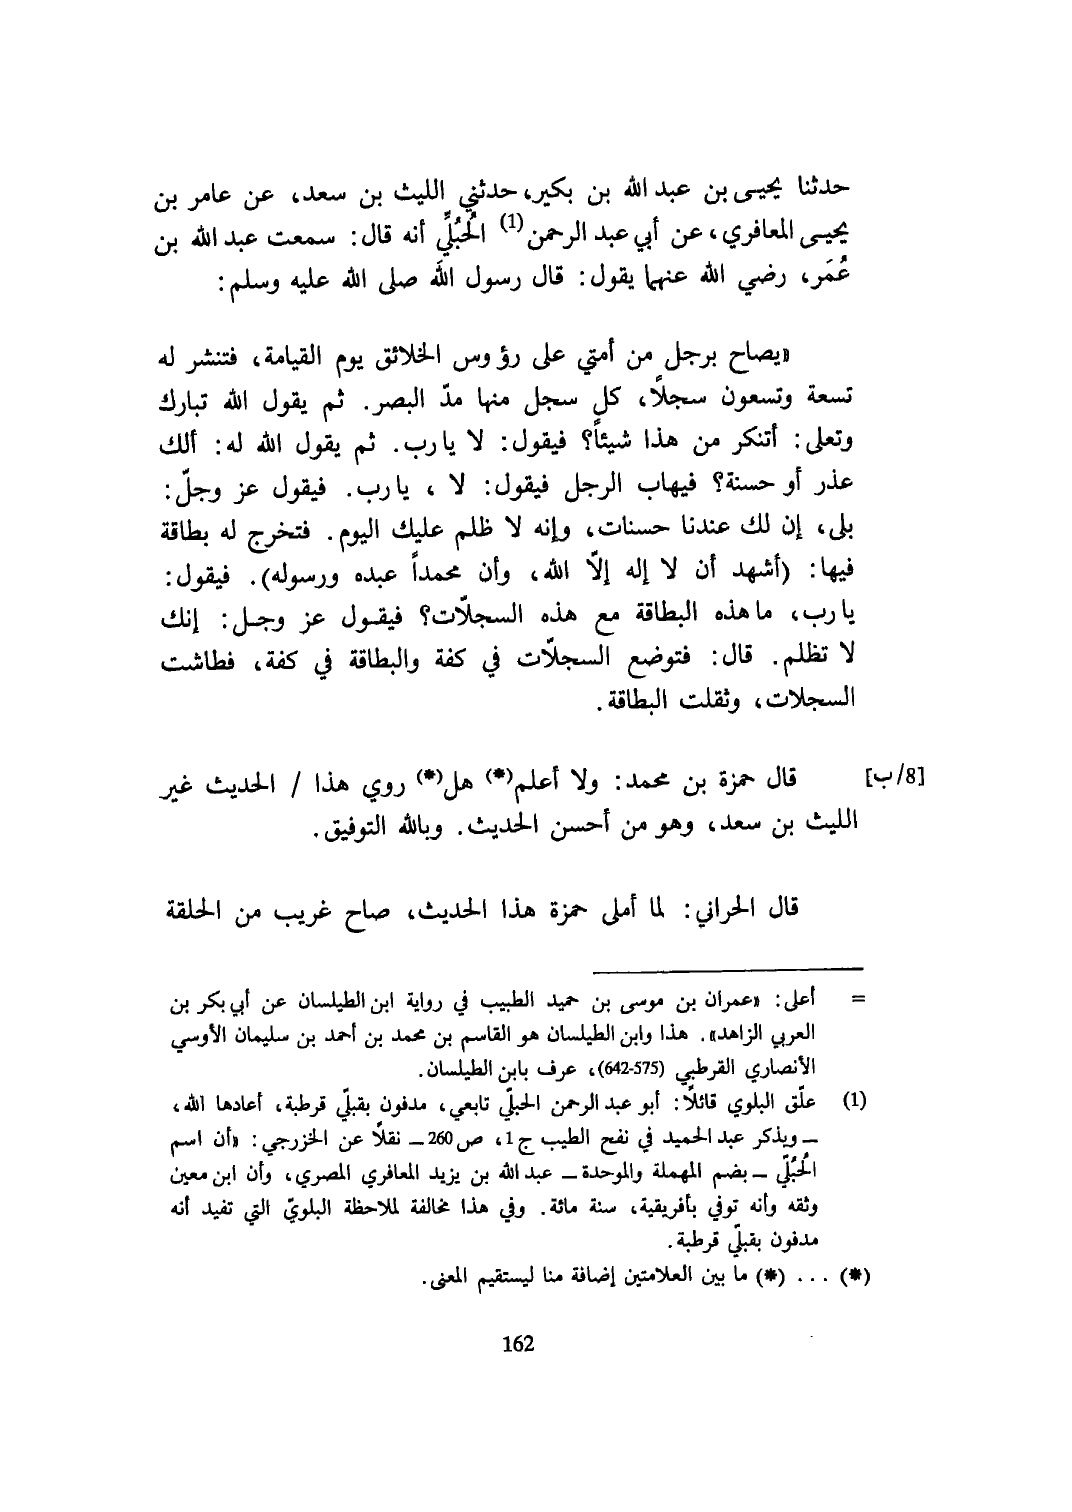 حدثنا يحيى بن عبد الله بن بكير، حدثني الليث بن سعد، عن عامر بن
يحيى المعافري، عن أبي عبد الرحمن (1) الحُبُلِّي أنه قال: سمعت عبد الله بن
عُمَر، رضي الله عنهما يقول: قال رسول الله صلى الله عليه وسلم:
«يصاح برجل من أمتي على رؤوس الخلائق يوم القيامة، فتنشر له
تسعة وتسعون سجلاً، كل سجل منها مدّ البصر. ثم يقول الله تبارك
وتعلى: أتنكر من هذا شيئاً؟ فيقول: لا يا رب. ثم يقول الله له: ألك
عذر أو حسنة؟ فيهاب الرجل فيقول: لا ، يا رب. فيقول عز وجلّ:
بلى، إن لك عندنا حسنات، وإنه لا ظلم عليك اليوم. فتخرج له بطاقة
فيها: (أشهد أن لا إله إلاّ الله، وأن محمداً عبده ورسوله). فيقول:
يا رب، ما هذه البطاقة مع هذه السجلاّت؟ فيقول عز وجل: إنك
لا تظلم. قال: فتوضع السجلاّت في كفة والبطاقة في كفة، فطاشت
السجلات، وثقلت البطاقة.
[8/ب] قال حمزة بن محمد: ولا أعلم(*) هل(*) روي هذا / الحديث غير
الليث بن سعد، وهو من أحسن الحديث. وبالله التوفيق.
قال الحراني: لما أملى حمزة هذا الحديث، صاح غريب من الحلقة
= أعلى: «عمران بن موسى بن حميد الطبيب في رواية ابن الطيلسان عن أبي بكر بن
العربي الزاهد». هذا وابن الطيلسان هو القاسم بن محمد بن أحمد بن سليمان الأوسي
الأنصاري القرطبي (575-642)، عرف بابن الطيلسان.
(1) علّق البلوي قائلاً: أبو عبد الرحمن الحبليّ تابعي، مدفون بقبليّ قرطبة، أعادها الله،
ــ ويذكر عبد الحميد في نفح الطيب ج 1، ص 260 ــ نقلاً عن الخزرجي: «أن اسم
الحُبُلِّي ــ بضم المهملة والموحدة ــ عبد الله بن يزيد المعافري المصري، وأن ابن معين
وثقه وأنه توفي بأفريقية، سنة مائة. وفي هذا مخالفة لملاحظة البلويّ التي تفيد أنه
مدفون بقبليّ قرطبة.
(*) ... (*) ما بين العلامتين إضافة منا ليستقيم المعنى.
162